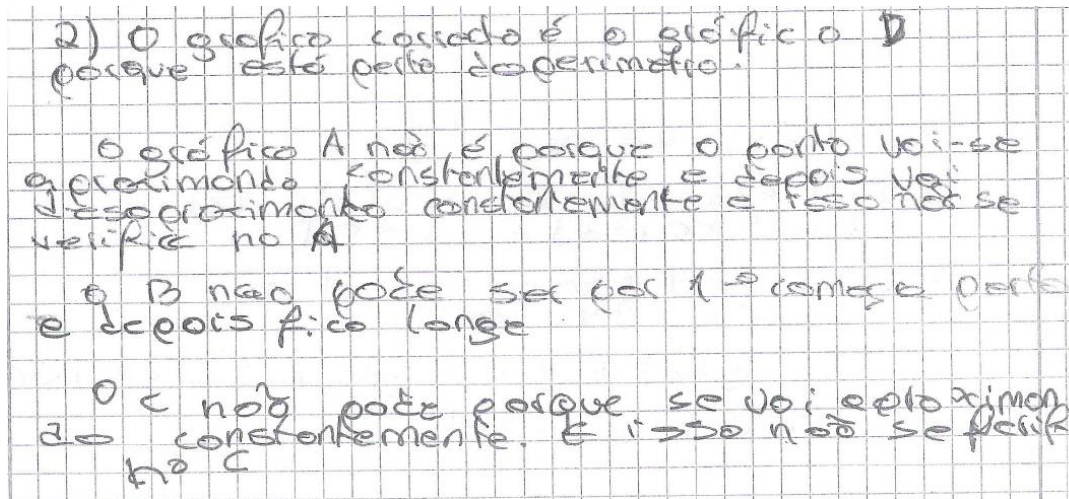 2) O grafico corredo é o gráfico D
porque está perto do perimetro.
O gráfico A não é porque o ponto vai-se
aproximando constentemente e depois vai
desaproximando constantemente e isso não se
verifica no A
O B nao pode ser por 1º começa perto
e depois fica longe
O C não pode porque se vai aproximan
do constantemente. E isso não se
no C